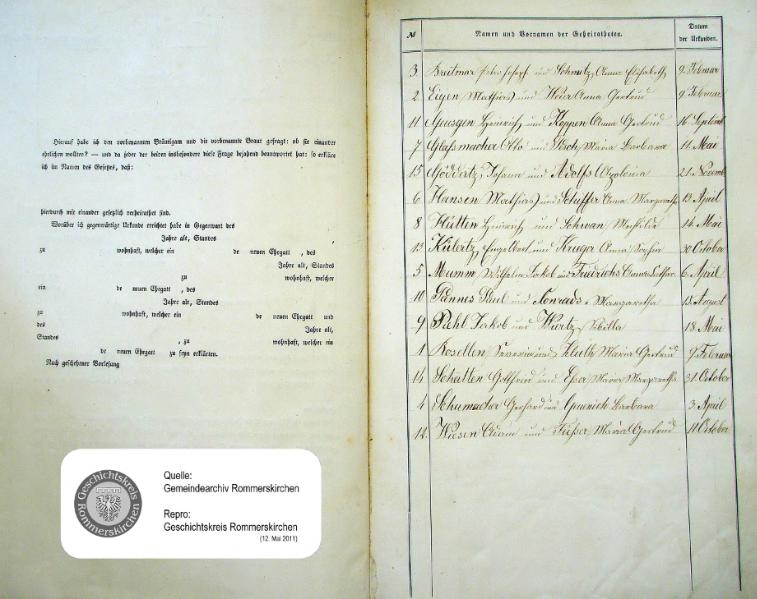 Hierauf habe ich den vorbenannten Bräutigam und die vorbenannte Braut gefragt: ob sie einander
ehelichen wollten? — und da jeder der beiden insbesondere diese Frage bejahend beantwortet hat: so erkläre
ich im Namen des Gesetzes, daß:
hierdurch mit einander gesetzlich verheirathet sind.
Worüber ich gegenwärtige Urkunde errichtet habe in Gegenwart des
Jahre alt, Standes
zu wohnhaft, welcher ein de neuen Ehegatt , des
Jahre alt, Standes
zu wohnhaft, welcher
ein de neuen Ehegatt , des
Jahre alt, Standes
zu wohnhaft, welcher ein de neuen Ehegatt und
des Jahre alt,
Standes , zu wohnhaft, welcher ein
de neuen Ehegatt zu seyn erklärten.
Nach geschehener Vorlesung
Geschichtskreis Rommerskirchen
Quelle:
Gemeindearchiv Rommerskirchen
Repro:
Geschichtskreis Rommerskirchen
(12. Mai 2011)
№ Namen und Vornamen der Geheiratheten. Datum der Urkunden.
3 Breitmar Peter Joseph und Schmitz Anna Elisabeth 9 Februar
2 Eigen Mathias und Anna Gertrud 9 Februar
11 Heinrich und Koppen Anna Gertrud 16 Septemb
7 Glasmacher Otto und Maria Barbara 11 Mai
15 Johann und Adolfs Apolonia 21 Novemb
6 Hansen Mathias und Schiffer Anna Margaretha 13 April
8 Hütten Heinrich und Schwan Mathilde 14 Mai
13 Engelbert und Kruger Anna Sophia 30 October
5 Mumm Wilhelm Jakob und Friedrichs 6 April
10 Pannes Paul und Conrads Margaretha 13 August
9 Pahl Jakob und Wurtz Sibilla 18 Mai
1 Rosellen Severin und Kluth Maria Gertrud 9 Februar
14 Schatten Gottfried und Esser Maria Margaretha 31 October
4 Schumacher Gerhard und Barbara 3 April
12 Wiesen Adam und Maria Gertrud 11 October